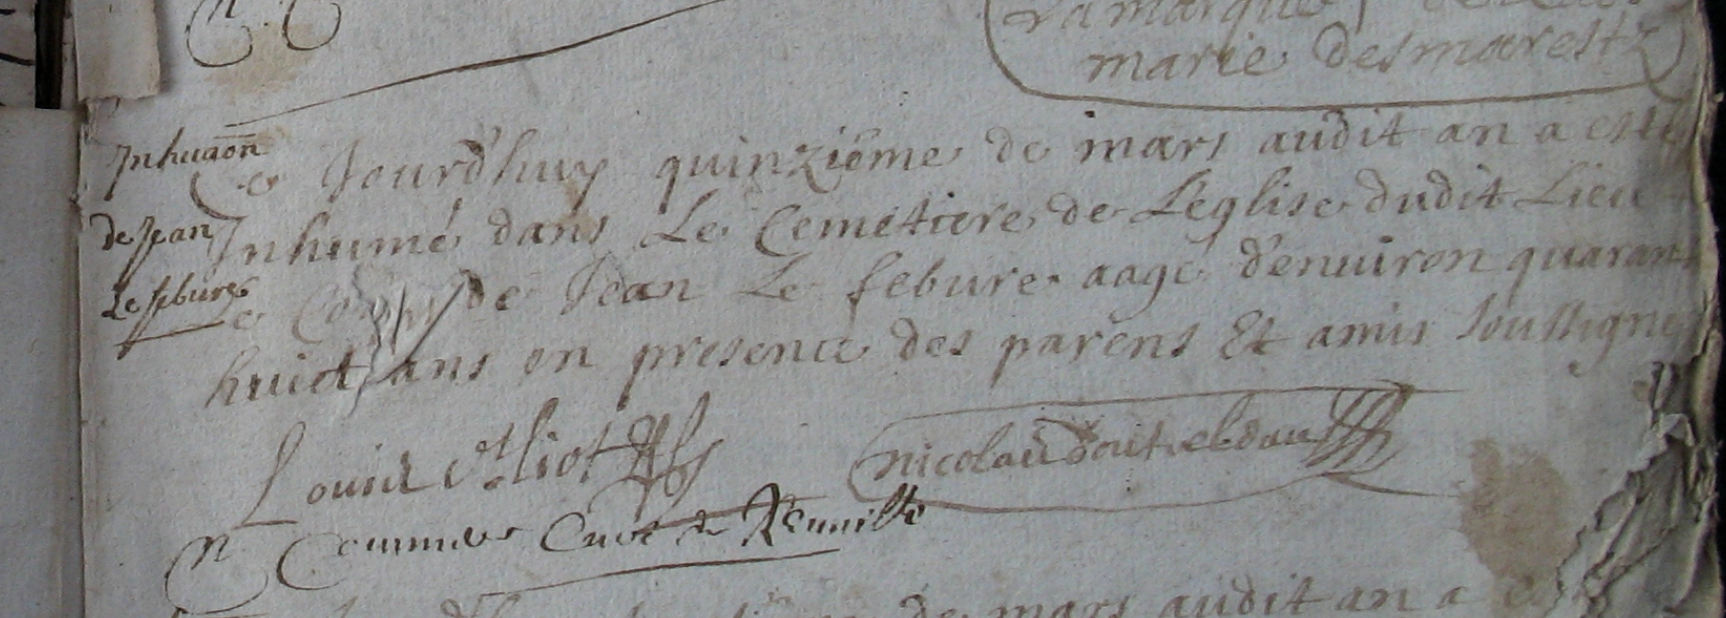 Lamarque
marie desmarestz
Inhuaõn
de Jean
Le febure
Ce Jourd'huy quinziéme de mars audit an a esté
Inhumé dans Le Cemétiere de L'eglise dudit Lieu
Le Corps de Jean Le febure aagé d'enuiron quarant
huict ans en presence des parens Et amis soussigne
Louis
nicolas
n Curé de
de mars audit an a